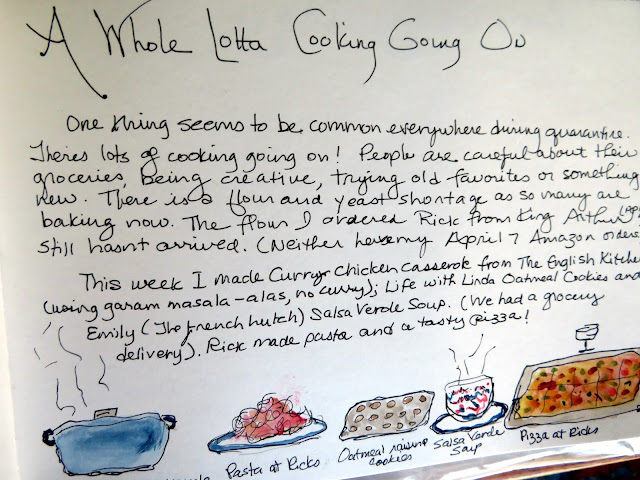 A Whole Lotta Cooking Going On
One thing seems to be common everywhere during quarantine.
Theres lots of cooking going on! People are careful about their
groceries, being creative, trying old favorites or something
new. There is a flour and yeast shortage as so many are
baking now. The flour I ordered Rick from King Arthur
still hasnt arrived. (Neither have my April 7 Amazon orders
This week I made Curry Chicken Casserole from The English Kitchen
(using garam masala - alas, no curry); Life with Linda Oatmeal Cookies and
Emily (The french hutch) Salsa Verde Soup. (We had a grocery
delivery). Rick made pasta and a tasty pizza!
Pasta at Ricks
Oatmeal raisin
cookies
Salsa Verde
Soup
Pizza at Ricks